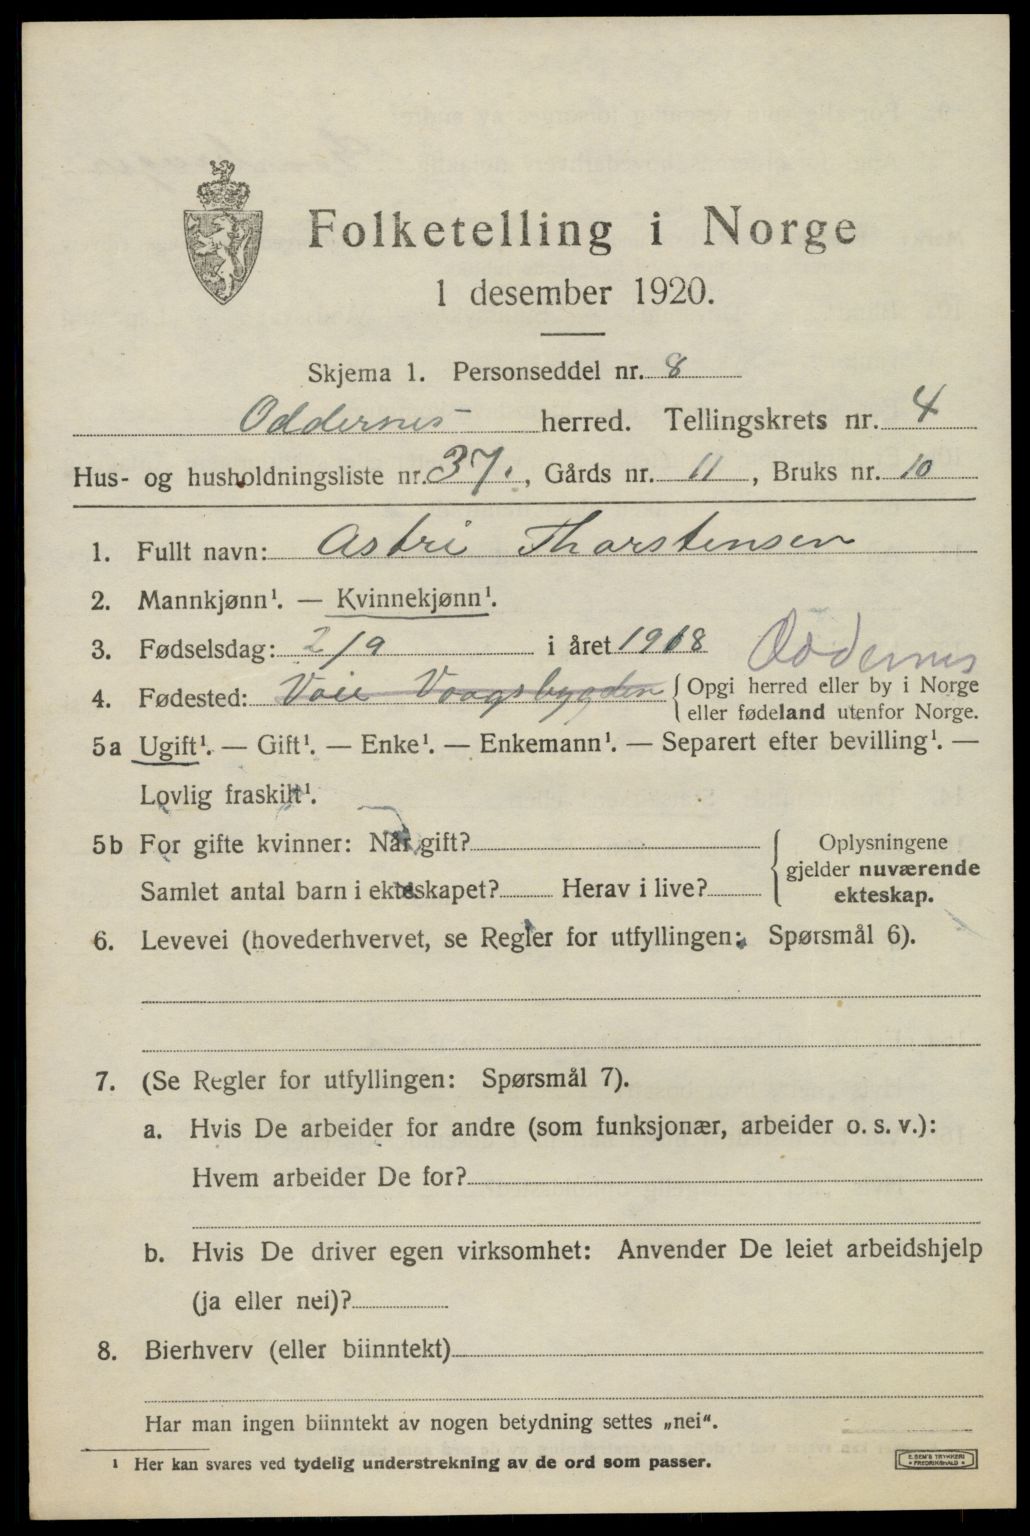 Folketelling i Norge
1 desember 1920.
Skjema 1. Personseddel nr. 8
Oddernes herred. Tellingskrets nr. 4
Hus- og husholdningsliste nr. 37., Gårds nr. 11, Bruks nr. 10
1. Fullt navn: Astri Thorstensen
2. Mannkjønn¹. — Kvinnekjønn¹.
3. Fødselsdag: 2/9 i året 1918 Oddernes
4. Fødested: Voie Vaagsbygden
Opgi herred eller by i Norge
eller fødeland utenfor Norge.
5a Ugift¹. — Gift¹. — Enke¹. — Enkemann¹. — Separert efter bevilling¹. —
Lovlig fraskilt¹.
5b For gifte kvinner: Når gift?
Samlet antal barn i ekteskapet? Herav i live?
Oplysningene
gjelder nuværende
ekteskap.
6. Levevei (hovederhvervet, se Regler for utfyllingen: Spørsmål 6).
7. (Se Regler for utfyllingen: Spørsmål 7).
a. Hvis De arbeider for andre (som funksjonær, arbeider o. s. v.):
Hvem arbeider De for?
b. Hvis De driver egen virksomhet: Anvender De leiet arbeidshjelp
(ja eller nei)?
8. Bierhverv (eller biinntekt)
Har man ingen biinntekt av nogen betydning settes „nei“.
¹ Her kan svares ved tydelig understrekning av de ord som passer.
E. SEM'S TRYKKERI
FREDRIKSHALD